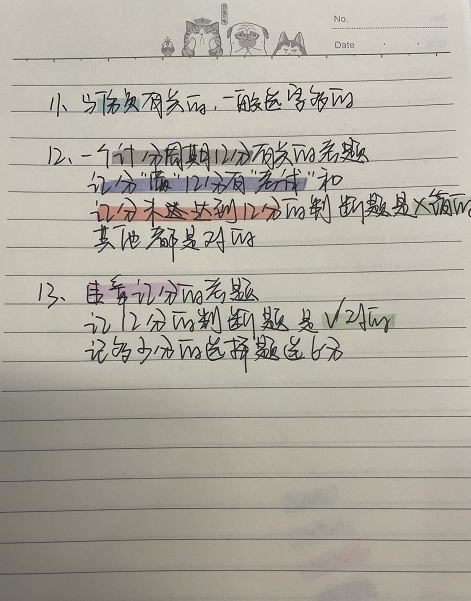 No.
Date
11、与除负有关的，一般选字多的
12、一个计分周期12分有关的考题
记分"满"12分有"考试"和
记分未达到12分的判断题是×错的
其他都是对的
13、记分的考题
记12分的判断题是√对的
记多少分的选择题选6分